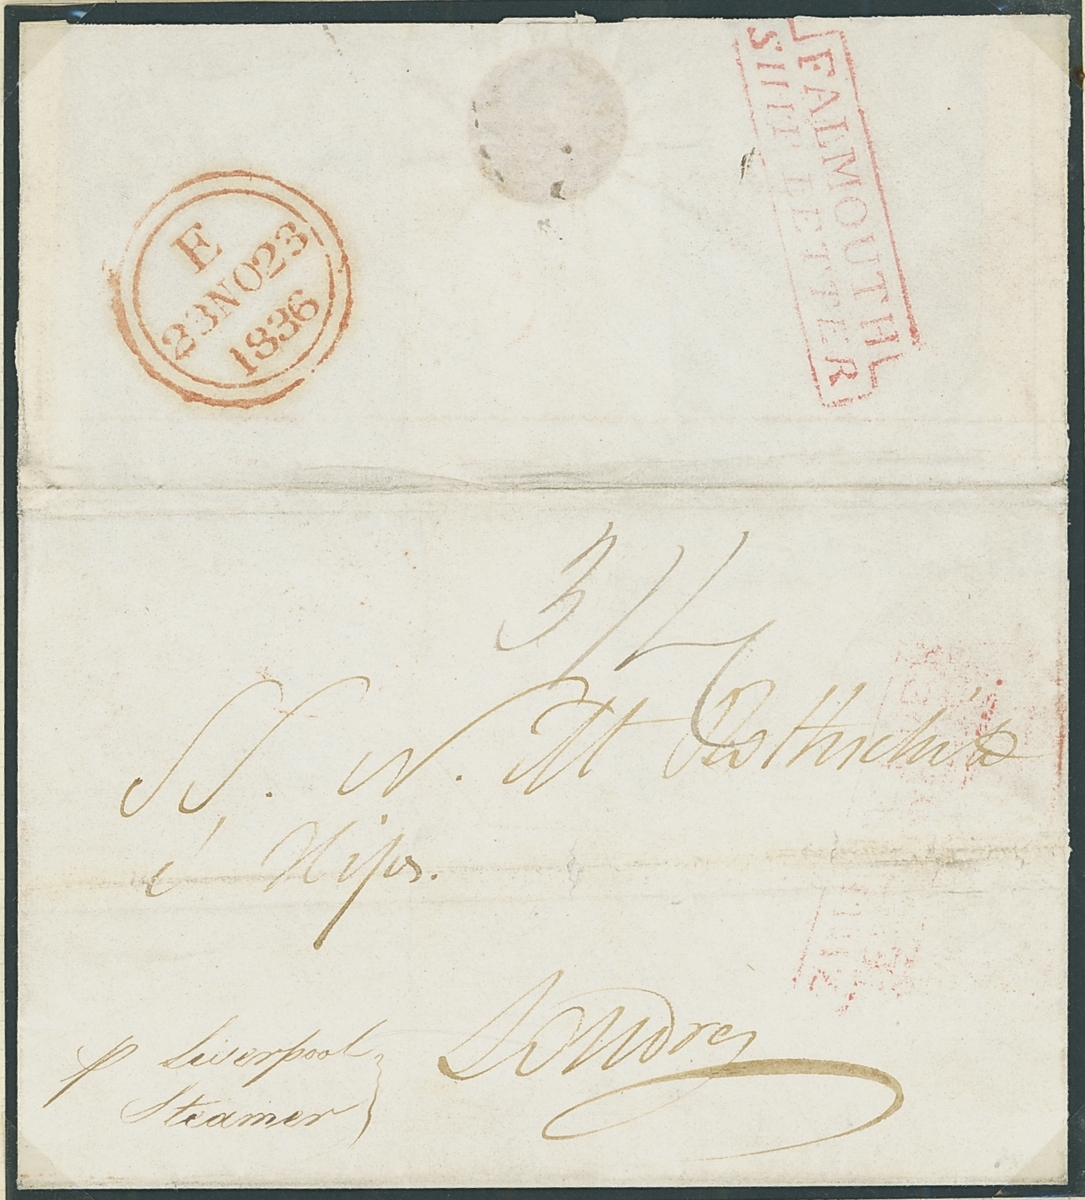 FALMOUTH
SHIP LETTER
E
23NO23
1836
SS. N. M Rothschild
é Hijos.
Londres
p Liverpool
Steamer